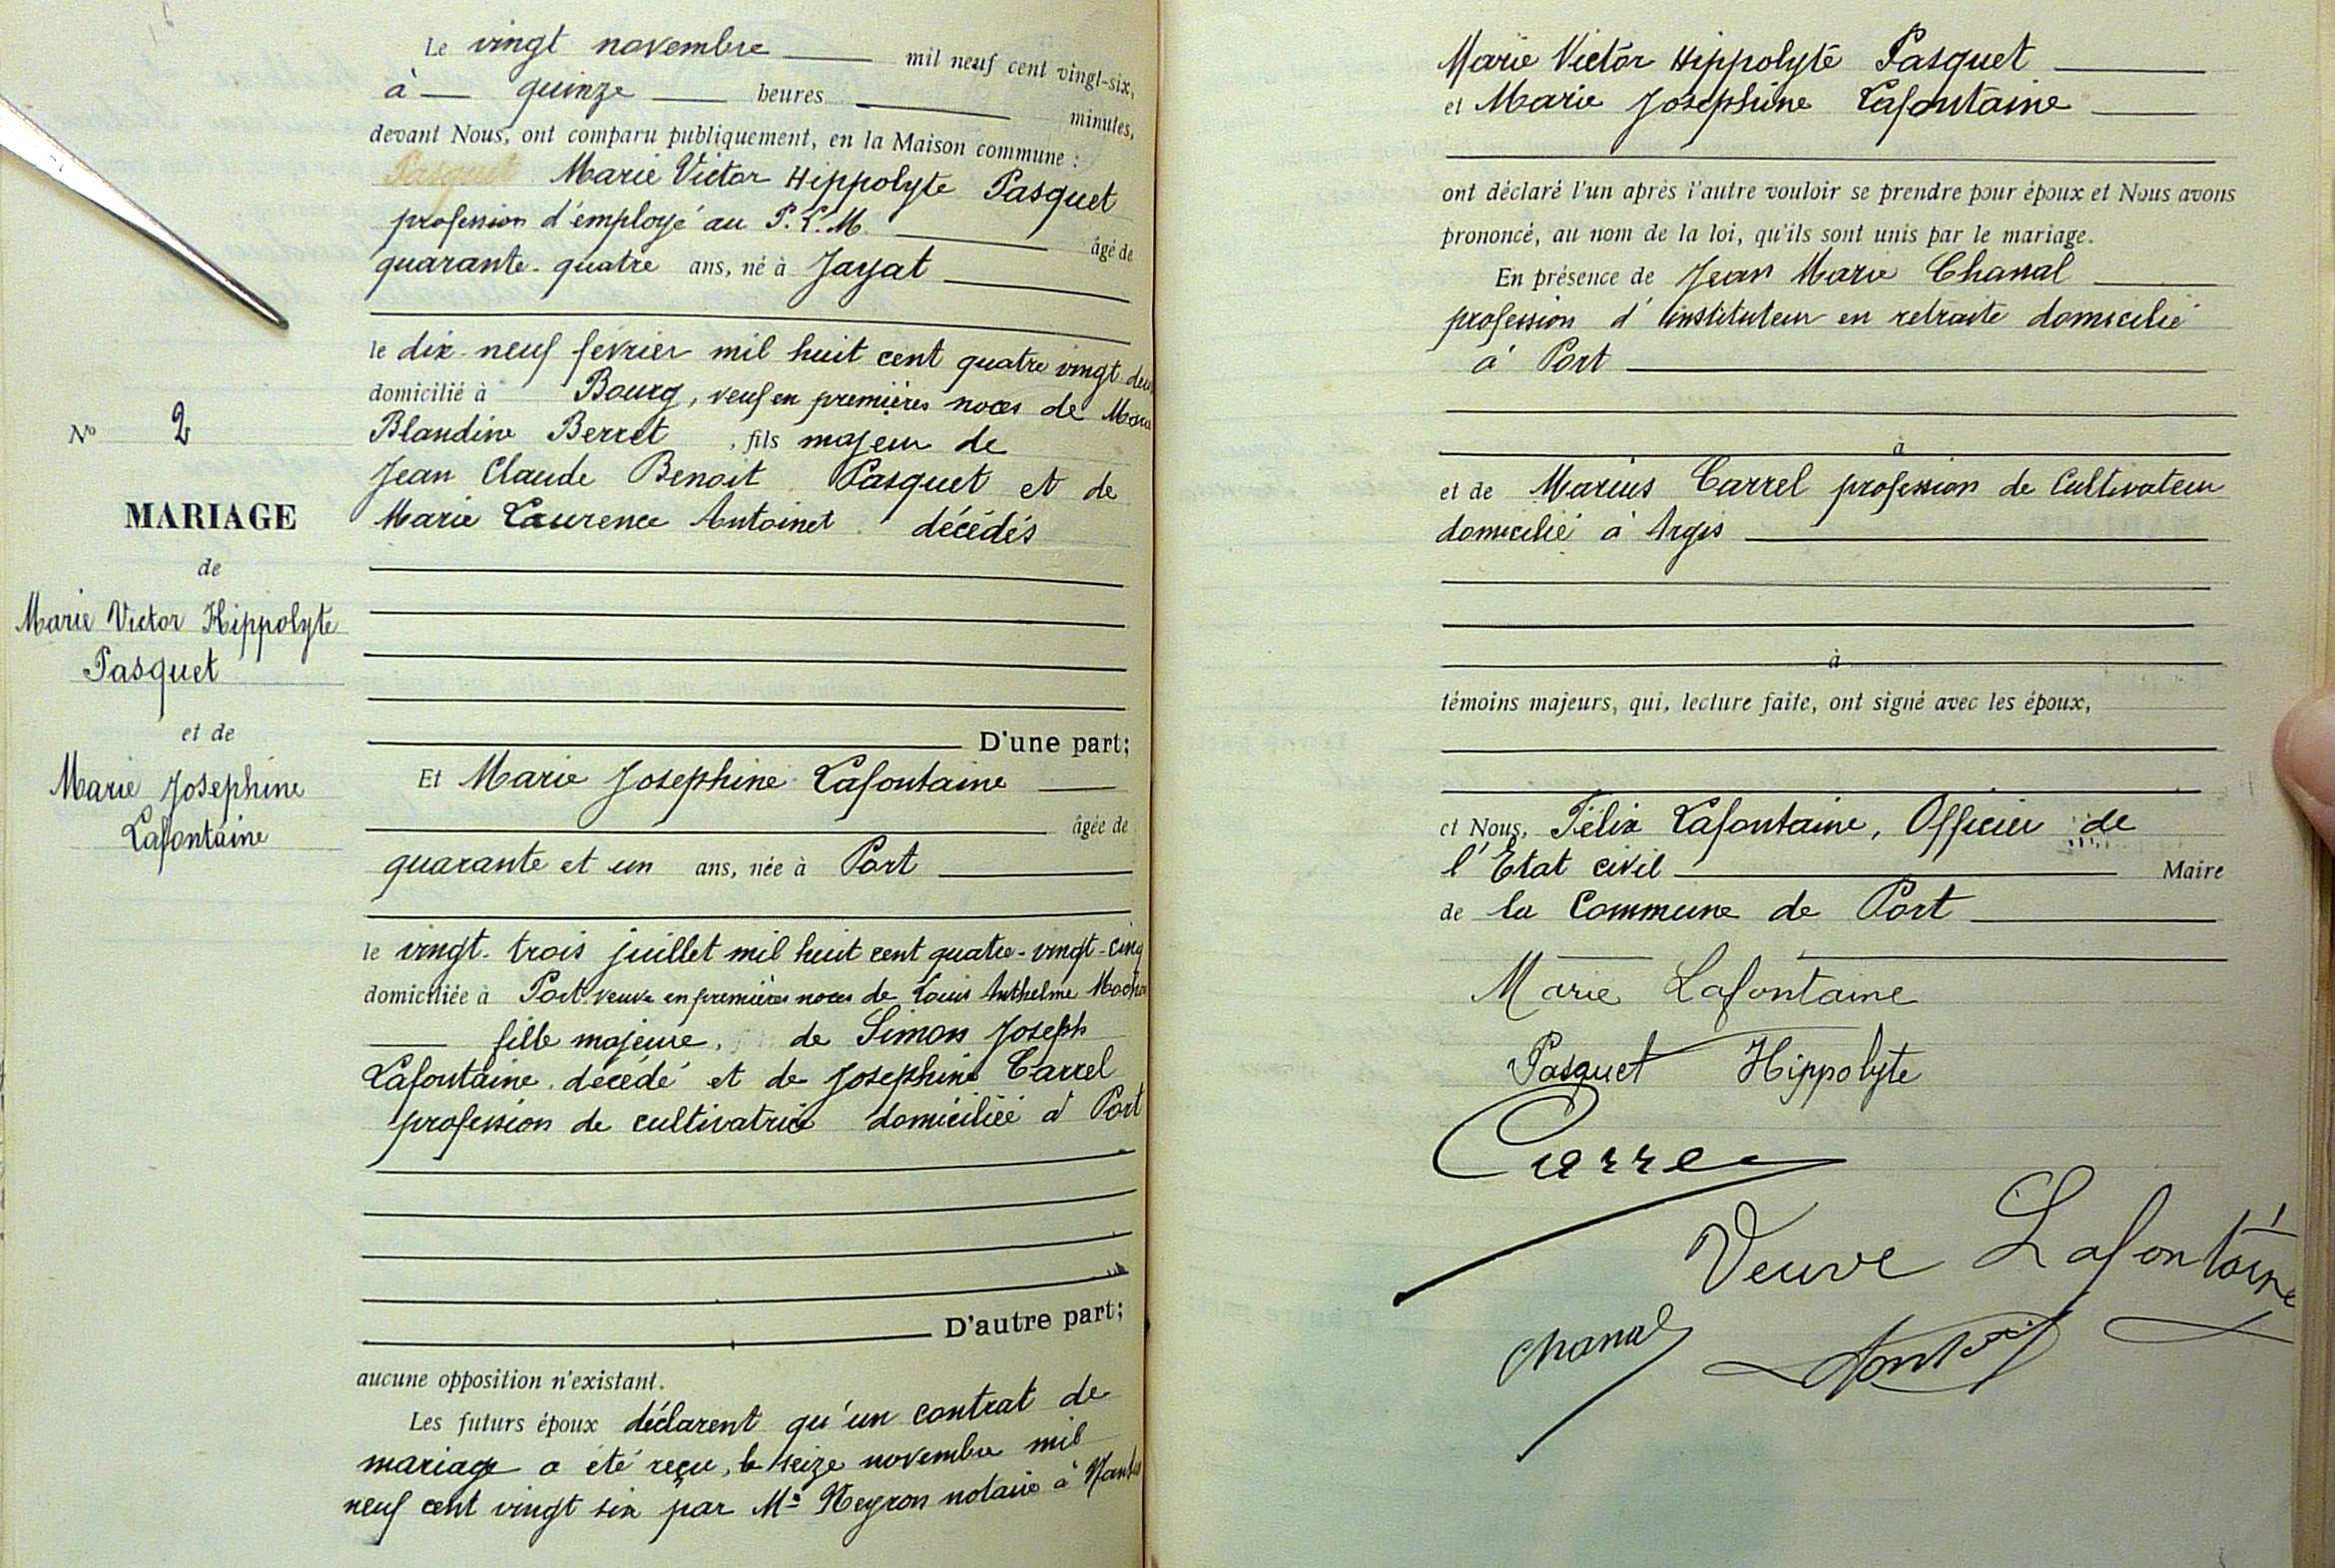 Le vingt novembre mil neuf cent vingt-six,
à quinze heures minutes,
devant Nous, ont comparu publiquement, en la Maison commune :
Pasquet Marie Victor Hippolyte Pasquet
profession d'employé au P.L.M. âgé de
quarante-quatre ans, né à Jayat
le dix-neuf février mil huit cent quatre vingt deux
domicilié à Bourg, veuf en premières noces de
Blandine Berret, fils majeur de
Jean Claude Benoit Pasquet et de
Marie Laurence Antoinet décédés
D'une part;
Et Marie Josephine Lafontaine
âgée de
quarante et un ans, née à Port
le vingt-trois juillet mil huit cent quatre-vingt-cinq
domiciliée à Port veuve en premières noces de Louis Anthelme
fille majeure, de Simon Joseph
Lafontaine décédé et de Josephine Carrel
profession de cultivatrice domiciliée à Port
D'autre part;
aucune opposition n'existant.
Les futurs époux déclarent qu'un contrat de
mariage a été reçu, le seize novembre mil
neuf cent vingt six par Me Neyron notaire à
No 2
MARIAGE
de
Marie Victor Hippolyte
Pasquet
et de
Marie Josephine
Lafontaine
Marie Victor Hippolyte Pasquet
et Marie Josephine Lafontaine
ont déclaré l'un après l'autre vouloir se prendre pour époux et Nous avons
prononcé, au nom de la loi, qu'ils sont unis par le mariage.
En présence de Jean Marie Chanal
profession d'instituteur en retraite domicilié
à Port
à
et de Marius Carrel profession de Cultivateur
domicilié à Argis
à
témoins majeurs, qui, lecture faite, ont signé avec les époux,
et Nous, Félix Lafontaine, Officier de
l'Etat civil Maire
de la Commune de Port
Marie Lafontaine
Pasquet Hippolyte
Carrel
Veuve Lafontaine
Chanal